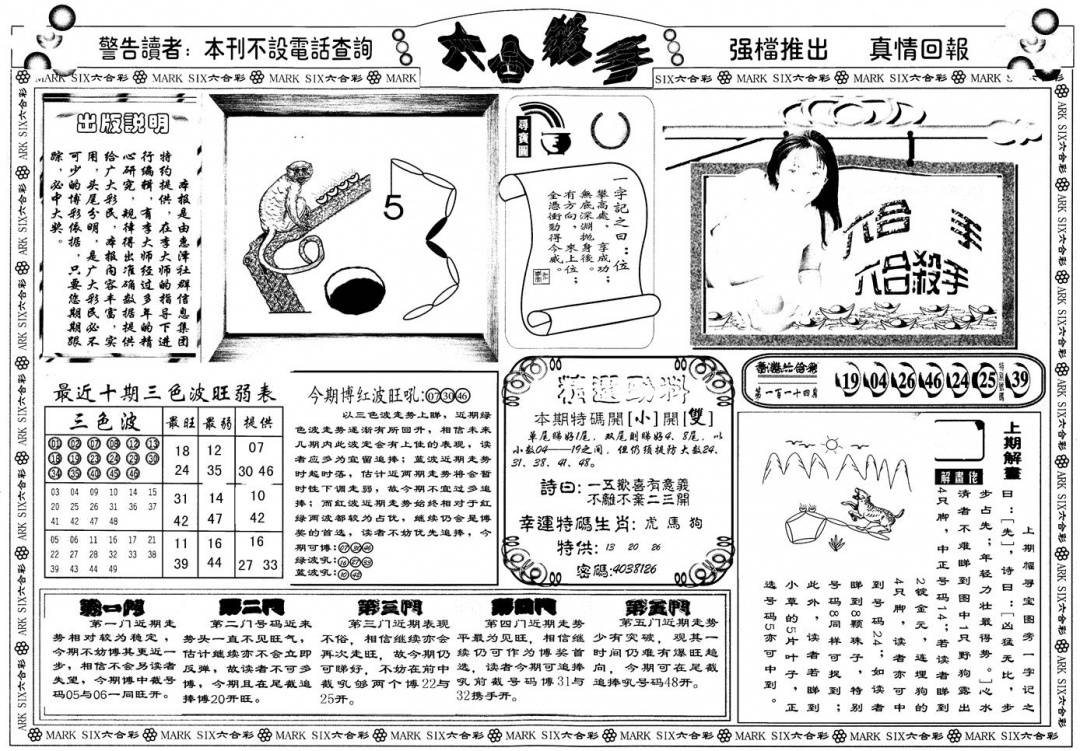 警告讀者：本刊不設電話查詢
六合殺手
强檔推出 真情回報
MARK SIX六合彩 MARK SIX六合彩 MARK SIX六合彩 MARK
SIX六合彩 MARK SIX六合彩 MARK SIX六合彩 MARK SIX六合彩
出版説明
本报是由惠泽社群信息集团
特约提供，在李大师的指导下进
行编辑，有李大师经过多年的精
心研究，规律得出准确数据提供
给广大彩民，本报内容丰富，实
用，头尾分明，是广大彩民必不
可少的博彩依据，只要您期期跟
踪，必中大奖。
5
一字記之曰：位
攀高處，享成功；
無底深淵拋身後。
有方向，來上位；
金憑衝勁得今威。
六合 手
六合殺手
第一百一十四期
19 04 26 46 24 25 39
最近十期三色波旺弱表
三色波 最旺 最弱 提供
01 02 07 08 12 13
18 19 23 24 29 30
34 35 40 45 46
18 12 07
24 35 30 46
03 04 09 10 14 15
20 25 26 31 36 37
41 42 47 48
31 14 10
42 47 42
05 06 11 16 17 21
22 27 28 32 33 38
39 43 44 49
11 16 16
39 44 27 33
今期博红波旺吼:07 30 46
以三色波走势上睇，近期绿
色波走势逐渐有所回升，相信未来
几期内此波定会有上佳的表现，读
者应多为宜留追捧；蓝波近期走势
时起时落，估计近两期走势将会暂
时性下调走弱，故今期不宜过多追
捧；而红波近期走势始终相对于红
绿两波都较为占优，继续仍会是博
奖的首选，读者不妨优先追捧，今
期可博:07 30 46
绿波吼:16 27 33
蓝波吼:10 42
精選動料
本期特碼開[小]開[雙]
单尾睇好1尾，双尾则睇好4、8尾，以
小数04——19之间，但仍须提防大数24、
31、38、41、48。
詩曰：一五歡喜有意義
不離不棄二三開
幸運特碼生肖：虎 馬 狗
特供：13 20 26
密碼:4038126
上期解畫
解畫佬
上期幅寻宝图旁一字记之
曰：[先]，诗曰：[凶猛无比，步
步占先；年轻力壮最得势。]心水
清者不难睇到图中1只野狗露出
4只脚，中正号码14；若读者睇到
2锭金元，连埋狗的
4只脚，读者亦可中
到号码24；如读者
睇到8颗珠子，特别
号码8同样可捉到；
此外，读者若睇到
小草的5片叶子，正
选号码5亦可中到。
第一門
第一门近期走
势相对较为稳定，
今期不妨博其更近一
步，相信不会另读者
失望，今期博中截号
码05与06一同旺开。
第二門
第二门号码近来
势头一直不见旺气，
估计继续亦不会立即
反弹，故读者不可多
博，今期且在尾截追
捧博20开旺。
第三門
第三门近期表现
不俗，相信继续亦会
再次走旺，故今期仍
可睇好，不妨在前中
截吼够两个博22与
25开。
第四門
第四门近期走势
平最为见旺，相信继
续仍可作为博奖首
选，读者今期可追捧
吼前截号码博31与
32携手开。
第五門
第五门近期走势
少有突破，观其一
时间仍难有爆旺趋
向，今期可在尾截
追捧吼号码48开。
MARK SIX六合彩 MARK SIX六合彩 MARK SIX六合彩 MARK SIX六合彩 MARK SIX六合彩 MARK SIX六合彩 MARK SIX六合彩 MARK SIX六合彩